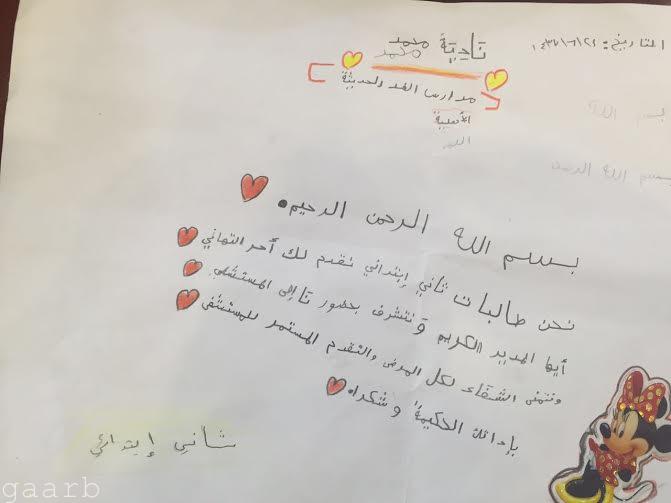 التاريخ: ١٤٣٧/٦/٢١
نادية محمد
محمد
مدارس الغد الحديثة
الأهلية
بسم الله
بسم الله الرحمن
بسم الله الرحمن الرحيم.
نحن طالبات ثاني إبتدائي نقدم لك أحر التهاني
أيها المدير الكريم ونتشرف بحضور نا إلى المستشفى
ونتمنى الشفاء لكل المرضى والتقدم المستمر للمستشفى
بإدارتك الحكيمة وشكرا.
ثاني إبتدائي
gaarb